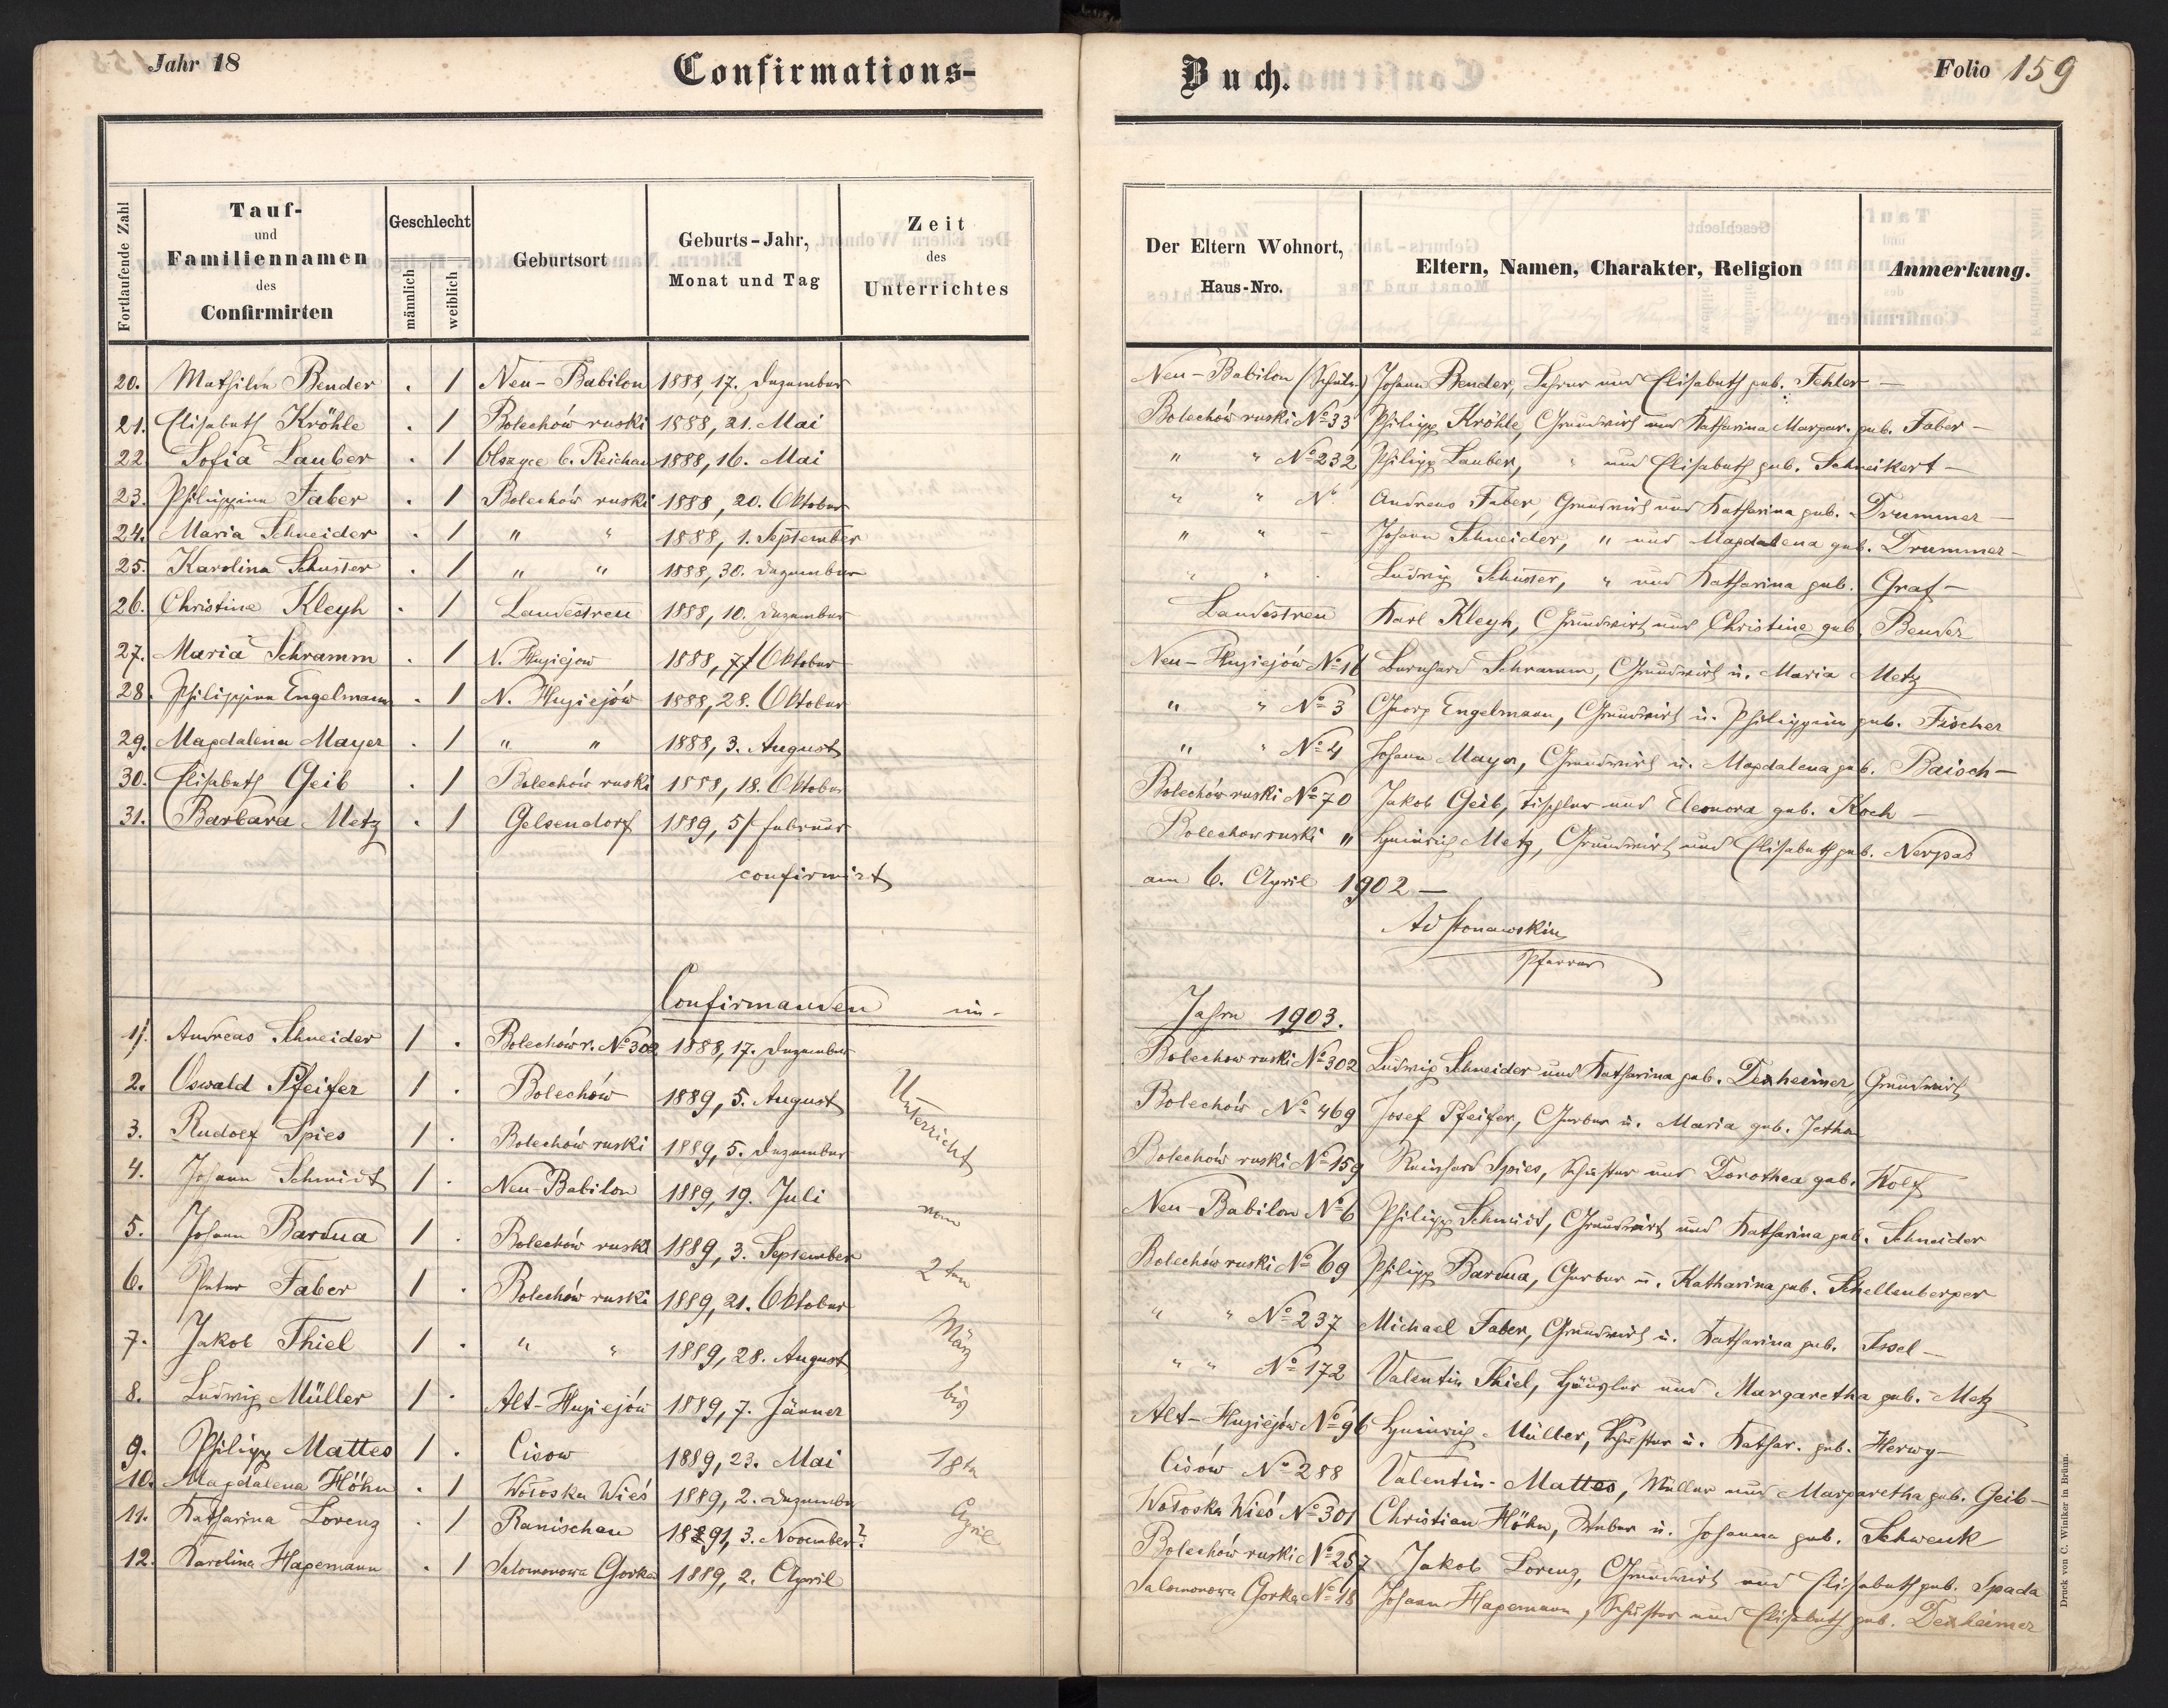 Jahr 18 Confirmations-
Fortlaufende Zahl
Tauf-
und
Familiennamen
des
Confirmirten
Geschlecht
männlich
weiblich
Geburtsort
Geburts-Jahr,
Monat und Tag
Zeit
des
Unterrichtes
20. Mathilde Bender . 1 Neu-Babilon 1888, 17. Dezember
21. Elisabeth Kröhle . 1 Bolechów ruski 1888, 21. Mai
22 Sofia Lauber . 1 b. Reichau 1888, 16. Mai
23. Philippine Faber . 1 Bolechów ruski 1888, 20. Oktober
24. Maria Schneider . 1 " " 1888, 1. September
25. Karolina Schusser . 1 " " 1888, 30. Dezember
26. Christine Kleyh . 1 Landestreu 1888, 10. Dezember
27. Maria Schramm . 1 N. Hugiejow 1888, Oktober
28. Philippine Engelmann . 1 N. Hugiejów 1888, 28. Oktober
29. Magdalena Mayer . 1 " " 1888, 3. August
30. Elisabeth Geib . 1 Bolechów ruski 1888, 18. Oktober
31. Barbara Metz . 1 Gelsendorf 1889, 5/ Februar
confirmirt
Confirmanden im
1/. Andreas Schneider 1 . Bolechów r. No 302 1888, 17. Dezember
2. Oswald Pfeifer 1 . Bolechów 1889, 5. August
3. Rudolf Spies 1 . Bolechów ruski 1889, 5. Dezember
4. Johann Schmidt 1 . Neu-Babilon 1889, 19. Juli
5. Johann Bardua 1 . Bolechów ruski 1889, 3. September
6. Peter Faber 1 . Bolechów ruski 1889, 21. Oktober
7. Jakob Thiel 1 . " " 1889, 28. August
8. Ludwig Müller 1 . Alt-Hugiejów 1889, 7. Jänner
9. Philipp Mattes 1 . Cisow 1889, 23. Mai
10. Magdalena Höhn . 1 Wołoska Wieś 1889, 2. Dezember
11. Katharina Lorenz . 1 Ranischau 1891, 3. November?
12. Karolina Hagemann . 1 Salomonowa Gorka 1889, 2. April
Unterricht
vom
2 ten
März
bis
18ten
April
Buch. Folio 159
Der Eltern Wohnort,
Haus-Nro.
Eltern, Namen, Charakter, Religion
Anmerkung.
Neu-Babilon (Schule) Johann Bender, Lehrer und Elisabeth geb. Fehler —
Bolechów ruski No 33 Philipp Kröhle, Grundwirth und Katharina Margar. geb. Faber —
" " No 232 Philipp Lauber, " und Elisabeth geb. Schneikert —
" " No Andreas Faber, Grundwirth und Katharina geb. Drummer —
" " - Johann Schneider, " und Magdalena geb. Drummer —
" " . Ludwig Schusser, " und Katharina geb. Graf —
Landestreu Karl Kleyh, Grundwirt und Christine geb. Bender
Neu-Hugiejów No 16 Bernhard Schramm, Grundwirth u. Maria Metz
" " No 3 Georg Engelmann, Grundwirt u. Philippine geb. Fischer
" " No 4 Johann Mayer, Grundwirth u. Magdalena geb. Baisch —
Bolechów ruski No 70 Jakob Geib, Tischler und Eleonora geb. Koch —
Bolechow ruski " Heinrich Metz, Grundwirt und Elisabeth geb. Nerpas
am 6. April 1902 —
Pfarrer
Jahre 1903.
Bolechow ruski No 302 Ludwig Schneider und Katharina geb. Dexheimer, Grundwirt
Bolechów No 469 Josef Pfeifer, Gerber u. Maria geb. Jethon
Bolechów ruski No 159 Reinhard Spies, Schuster und Dorothea geb. Kolf
Neu-Babilon No 6 Philipp Schmidt, Grundwirt und Katharina geb. Schneider
Bolechów ruski No 69 Philipp Bardua, Gerber u. Katharina geb. Schellenberger
" " No 237 Michael Faber, Grundwirth u. Katharina geb. Issel —
" " No 172 Valentin Thiel, Häusler und Margaretha geb. Metz
Alt-Hugiejów No 96 Heinrich Müller, Schuster u. Kathar. geb. Herwy —
Cisów No 288 Valentin Mattes, Müller und Margaretha geb. Geib —
Wołoska Wieś No 301 Christian Höhn, Weber u. Johanna geb. Schwenk
Bolechów ruski No 257 Jakob Lorenz, Grundwirt und Elisabeth geb. Spada
Salomonowa Gorka No 18 Johann Hagemann, Schuster und Elisabeth geb. Dexheimer
Druck von C. Winiker in Brünn.